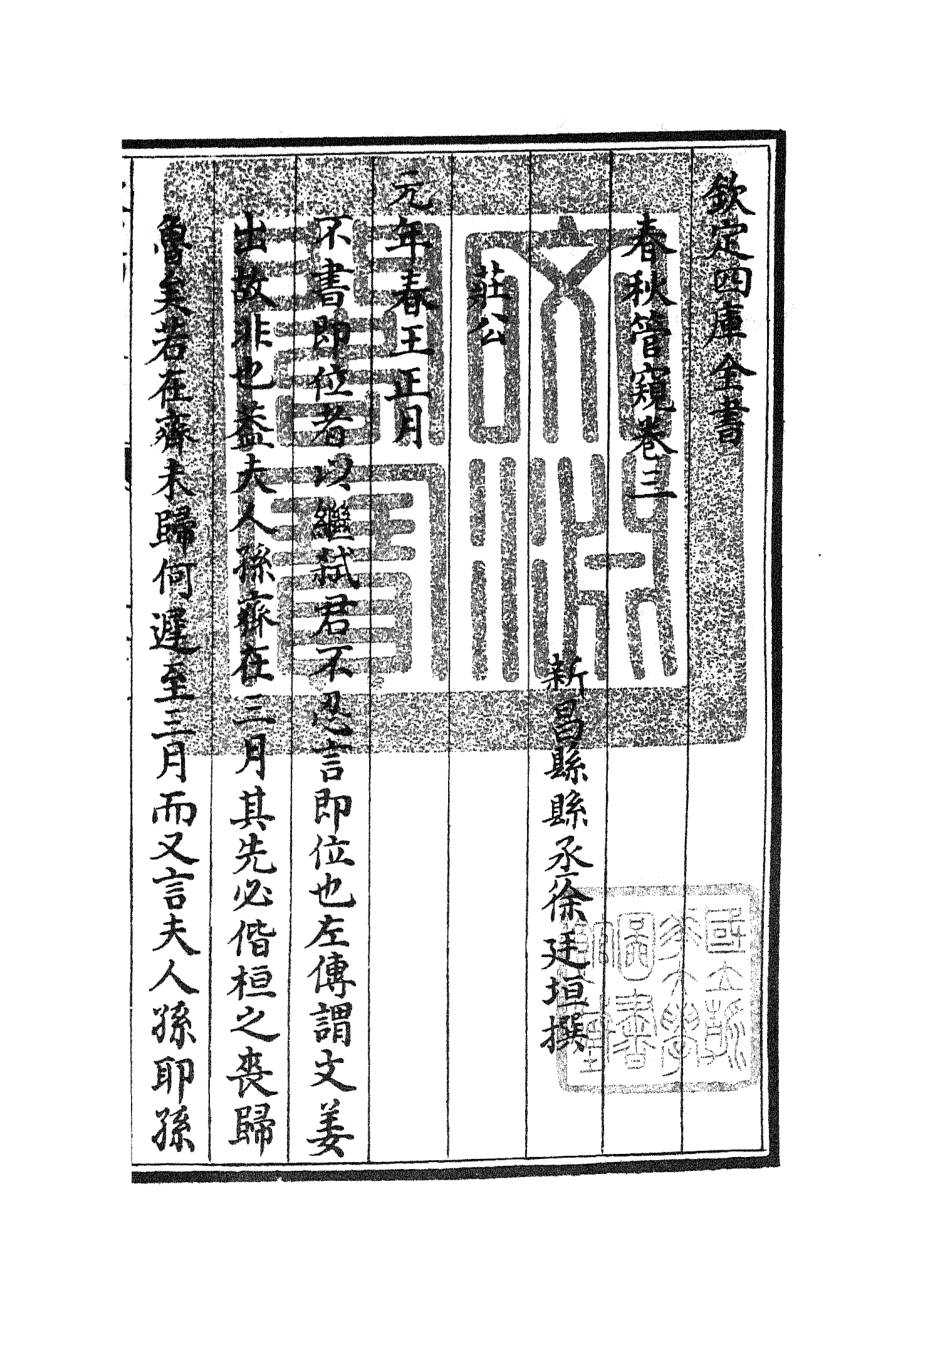 欽定四庫全書
春秋管窺卷三
新昌縣縣丞徐廷垣撰
莊公
元年春王正月
不書即位者以繼弑君不忍言即位也左傳謂文姜
出故非也葢夫人孫齊在三月其先必偕桓之喪歸
魯矣若在齊未歸何遲至三月而又言夫人孫耶孫
文淵閣寶
國立
大學
圖書